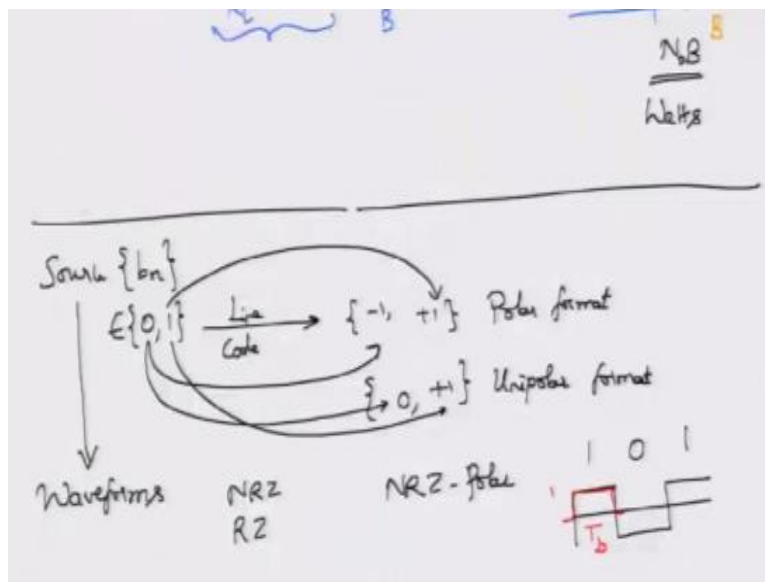 B
B
N₀B
Watts
Source {bn}
∈{0,1} Line Code {-1, +1} Polar format
{0, +1} Unipolar format
1 0 1
Waveforms NRZ NRZ-Polar 1
RZ
T_b